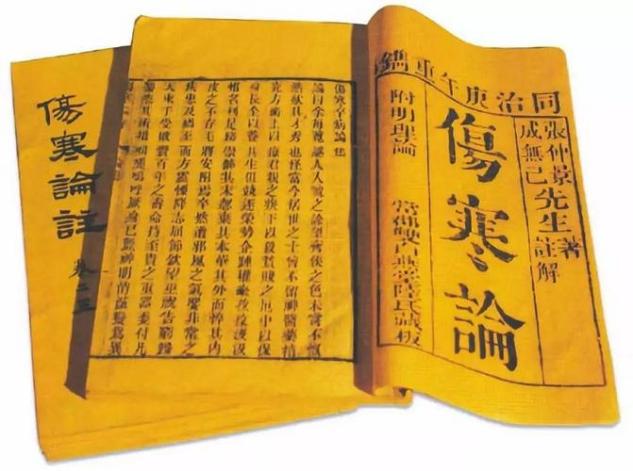 同治庚午重鐫
張仲景先生著
成無己先生註解
傷寒論
附明理論
常郡雙白燕堂陸氏藏板
傷寒卒病論集
論曰余每覽越人入虢之診望齊侯之色未嘗不慨
然歎其才秀也怪當今居世之士曾不留神醫藥精
究方術上以療君親之疾下以救貧賤之厄中以保
身長全以養其生但競逐榮勢企踵權豪孜孜汲汲
惟名利是務崇飾其末忽棄其本華其外而悴其內
皮之不存毛將安附焉卒然遭邪風之氣嬰非常之
疾患及禍至而方震慄降志屈節欽望巫祝告窮歸
天束手受敗齎百年之壽命持至貴之重器委付凡
醫恣其所措咄嗟嗚呼厥身已斃神明消滅變為異
傷寒論註
卷二